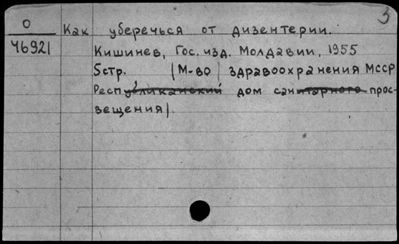 5
О
46921
Как уберечься от дизентерии.
Кишинев, Гос. изд. Молдавии, 1955
5стр. |М-во| здравоохранения МССР
Республиканский дом санитарного прос-
вещения|.